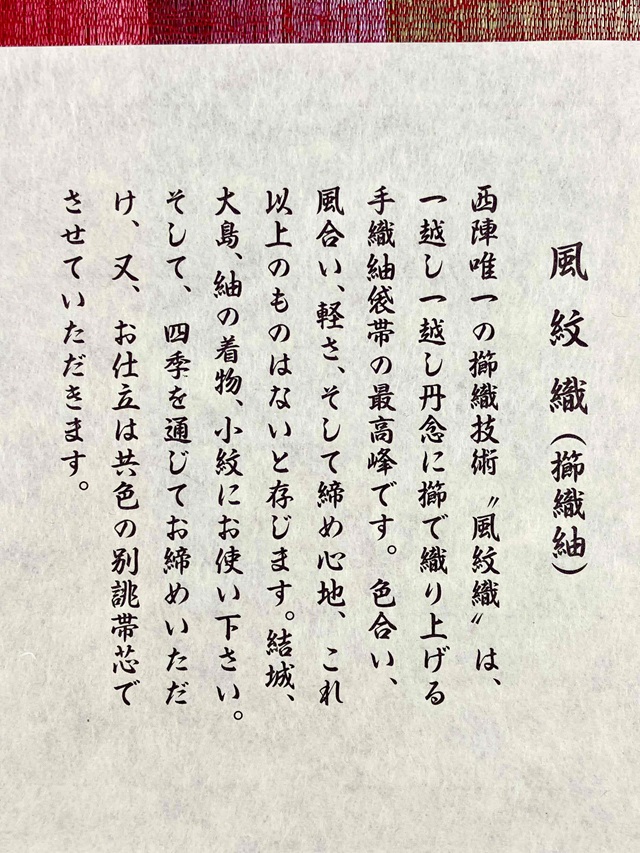 風紋織(擳織紬)
西陣唯一の擳織技術〝風紋織〟は、
一越し一越し丹念に擳で織り上げる
手織紬袋帯の最高峰です。色合い、
風合い、軽さ、そして締め心地、これ
以上のものはないと存じます。結城、
大島、紬の着物、小紋にお使い下さい。
そして、四季を通じてお締めいただ
け、又、お仕立は共色の別誂帯芯で
させていただきます。